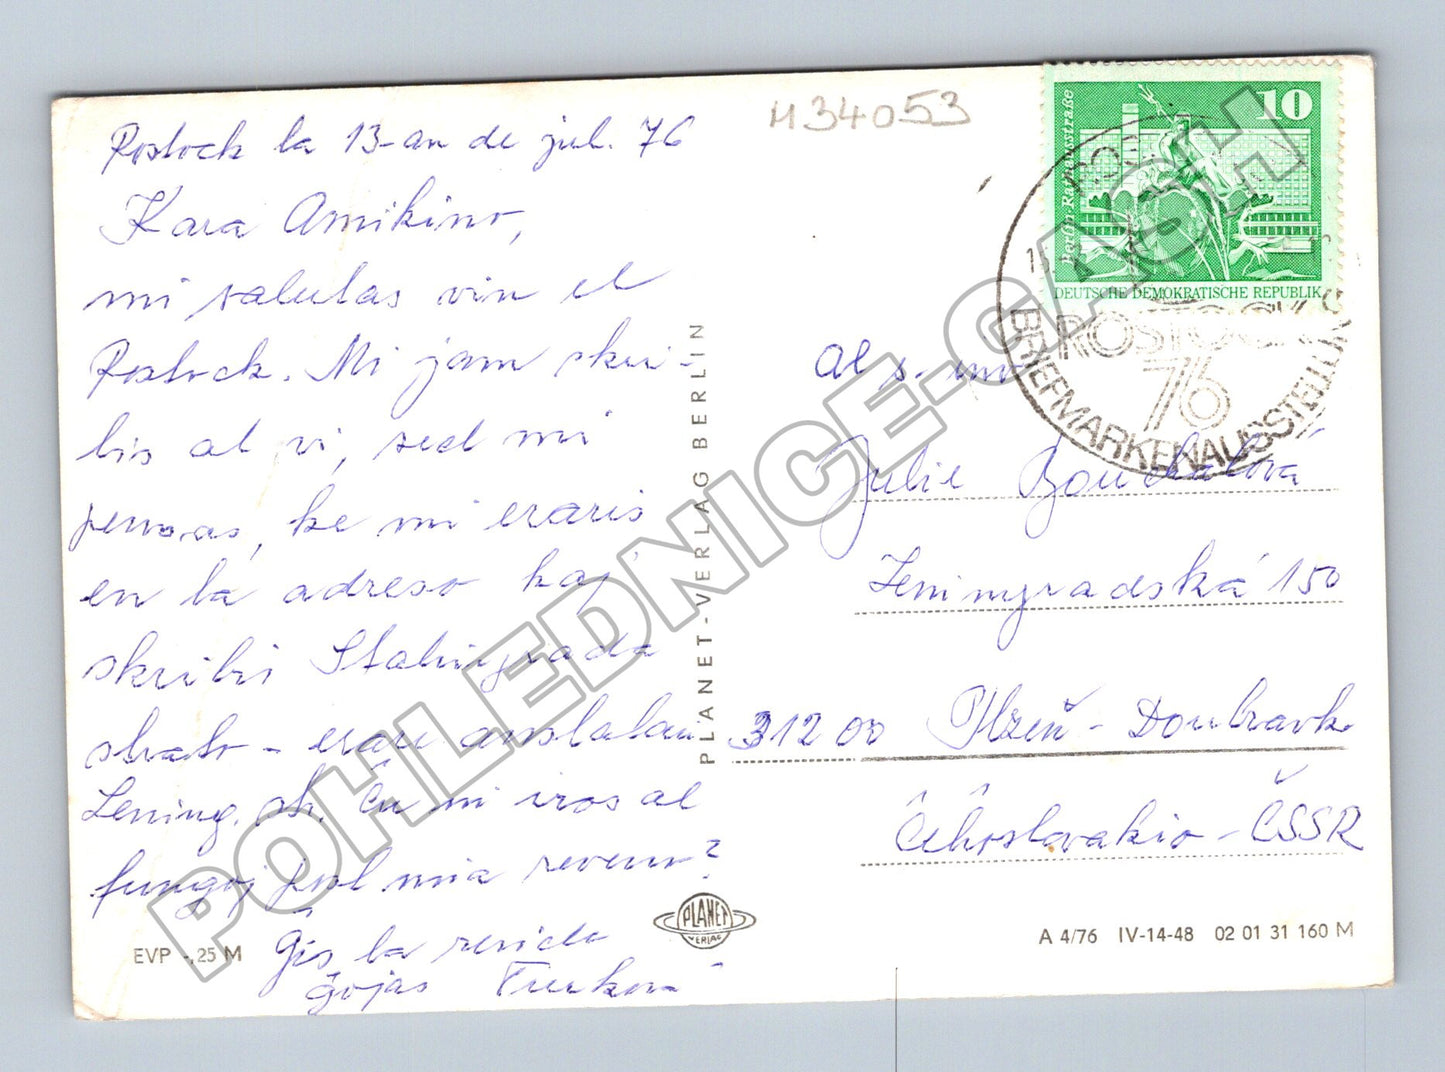 M34053
Rostock la 13-an de jul. 76
Kara Amikino,
mi salutas vin el
Rostock. Mi jam skri-
bis al vi, sed mi
pensas, ke mi eraris
en la adreso kaj
skribis Stalingrada
strato - erare anstataŭ
Lening. str. Ĉu ni iros al
fungoj post mia reveno?
Ĝis la revido
ĝojas
PLANET-VERLAG BERLIN
EVP -,25 M
PLANET
VERLAG
A 4/76 IV-14-48 02 01 31 160 M
10
Berlin Rathausstraße
DEUTSCHE DEMOKRATISCHE REPUBLIK
ROSTOCK
76
BRIEFMARKENAUSSTELLUNG
Al s-ino
Julie Bouchalová
Leningradská 150
31200 Plzeň - Doubravka
Ĉeĥoslovakio - ČSSR
POHLEDNICE-CASH